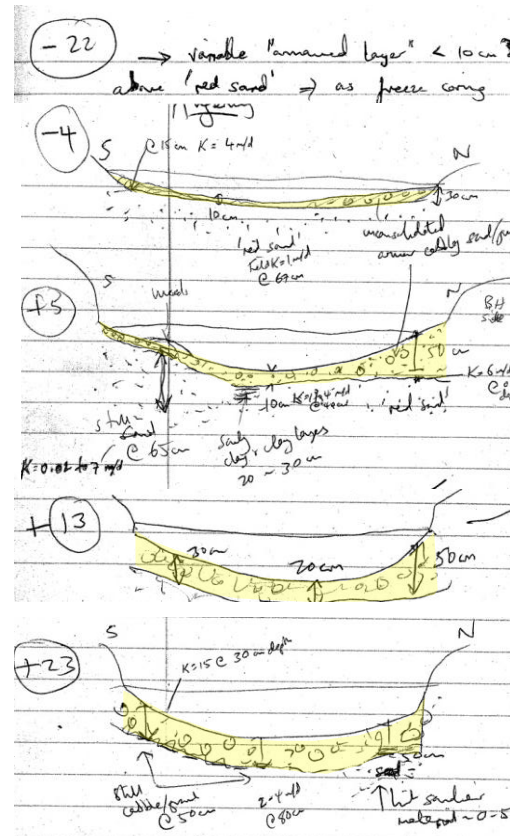 -22 → variable "armoured layer" < 10cm?
above 'red sand' ⇒ as freeze coring
-4
S
@ 15cm K = 4m/d
N
10cm
30cm
'red sand'
K=1m/d
@ 69cm
unconsolidated
armour cobbley sand/
+5
S
N
BH
side
weeds
50cm
K=6m/d
@
10cm
'red sand'
still
sand
@ 65cm
sandy
clay + clay layers
20 - 30cm
K=0.01 to 7 m/d
+13
30cm
20cm
50cm
+23
S
N
K=15 @ 30cm depth
still
cobble/sand
@ 50cm
2.4m/d
@ 80cm
50cm
sand
hit sandier
material ~0.5